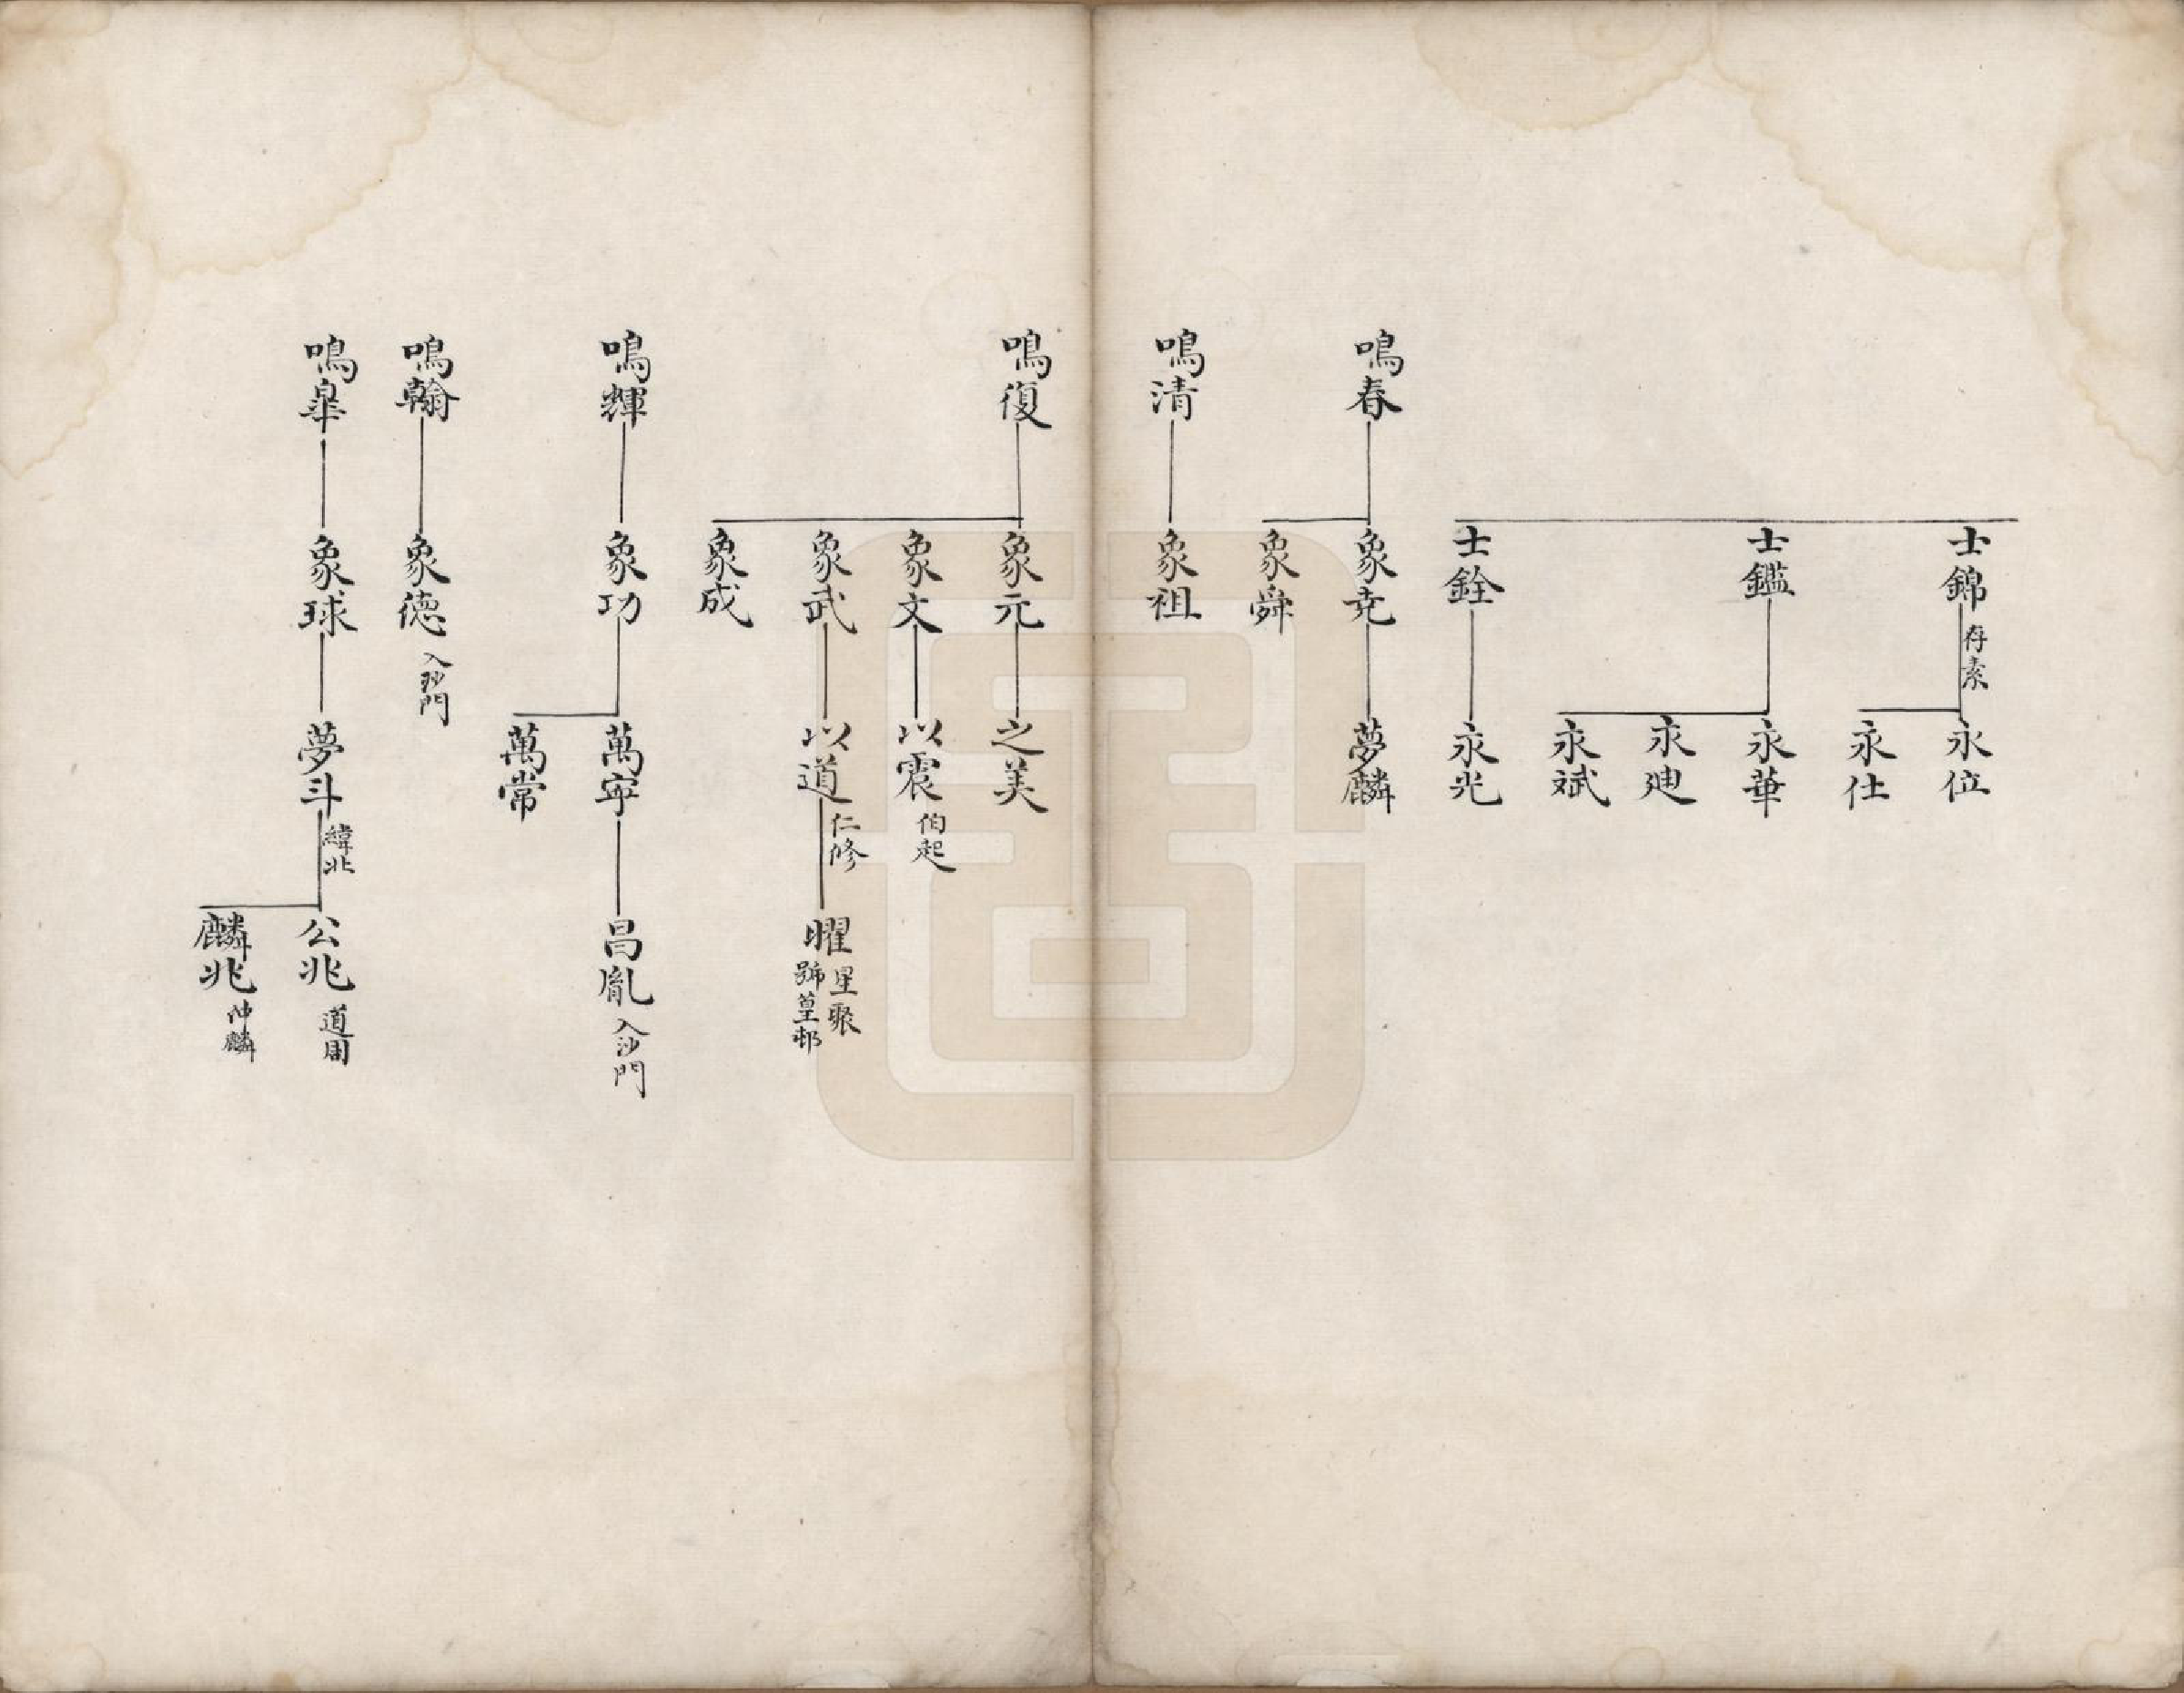 士錦 存素
永位
永仕
士鑑
永華
永迪
永斌
士銓
永光
鳴春
象堯
夢麟
象舜
鳴清
象祖
鳴復
象元
之美
象文
以震 伯起
象武
以道 仁修
曜 星聚
號篁邨
象成
鳴輝
象功
萬寧
昌胤 入沙門
萬常
鳴翰
象德 入沙門
鳴皋
象球
夢斗 緯北
公兆 道周
麟兆 仲麟